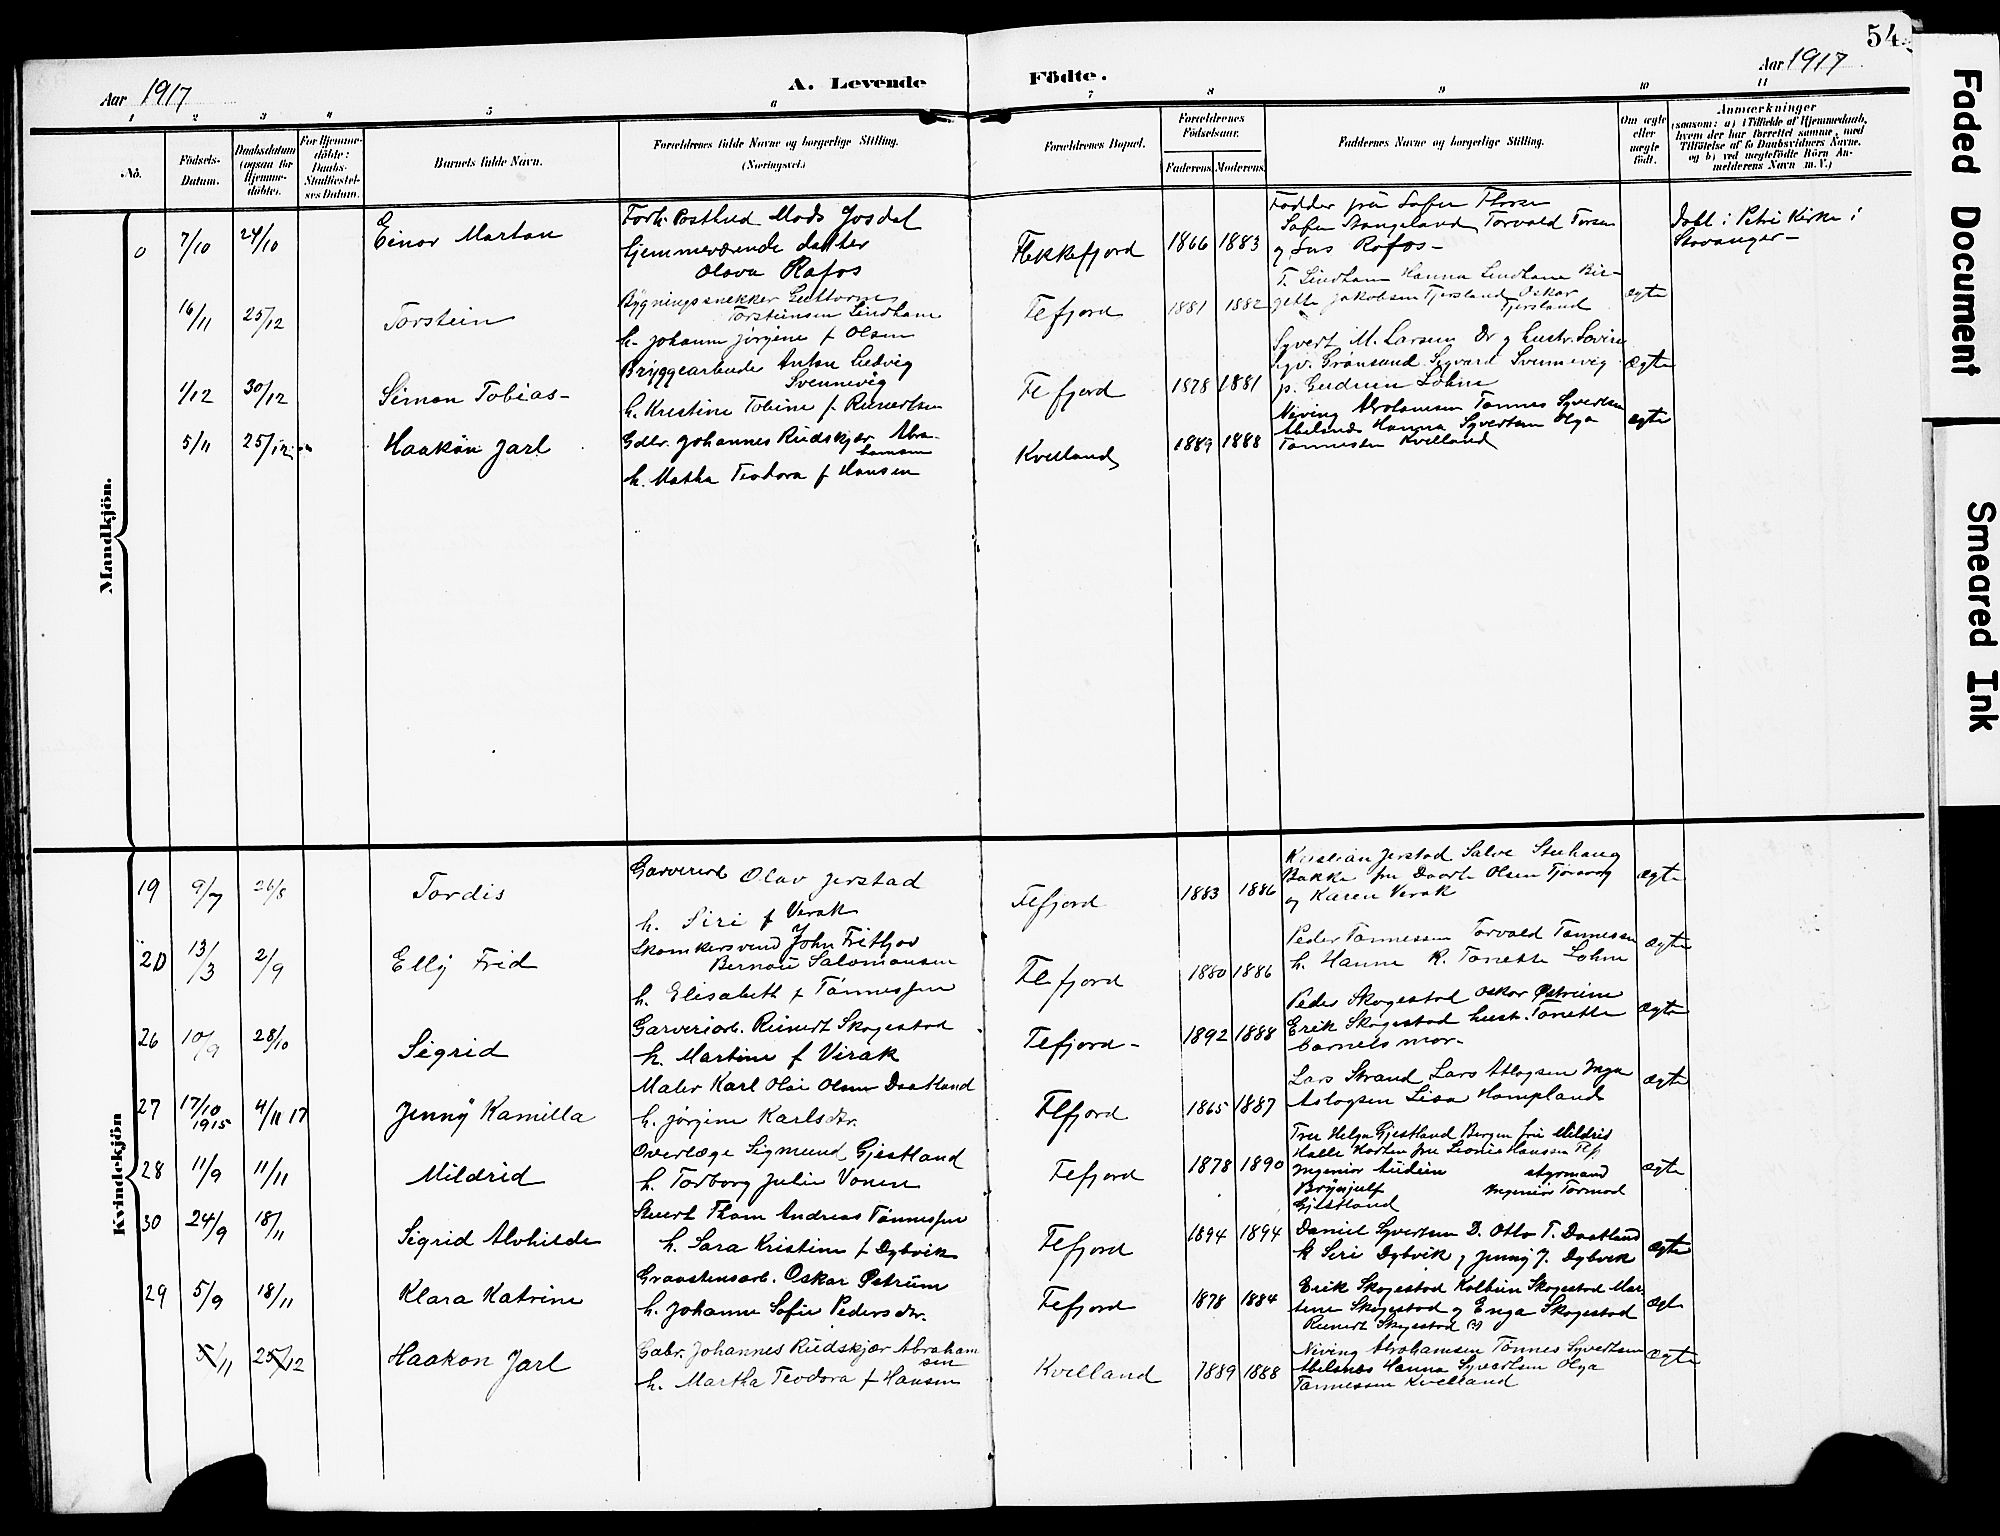 54
Aar 1917
A. Levende Födte.
Aar 1917
1 2 3 4 5 6 7 8 9 10 11
No.
Födsels-
Datum.
Daabsdatum
(ogsaa for
Hjemme-
döbte).
For Hjemme-
döbte:
Daabs-
Stadfæstel-
ses Datum.
Barnets fulde Navn.
Forældrenes fulde Navne og borgerlige Stilling.
(Næringsvei.)
Forældrenes Bopæl.
Forældrenes
Födselsaar.
Faderens. Moderens.
Faddernes Navne og borgerlige Stilling.
Om ægte
eller
uægte
födt.
Anmærkninger
(saasom: a) i Tilfælde af Hjemmedaab,
hvem der har forrettet samme, med
Tilföielse af to Daabsvidners Navne,
og b) ved uægtefödte Börn An-
melderens Navn m. V.)
Mandkjön.
0 7/10 24/10 Einar Martan
Forh. Postbud Mads Josdal
hjemmeværende datter
Olava Rafos
Flekkefjord 1866 1883
Stangeland Torvald
og Rafos-
Døbt i Petri Kirke i
Stavanger-
16/11 25/12 Torstein
Bygningssnekker Guttorm
Torsteinsen Lindham
h. Johanne Jørgine f Olsen
Flefjord 1881 1882
T. Lindham Hanna Lindham Bir-
gette Jakobsen Fjersland Oskar
Fjersland
ægte
1/12 30/12 Simon Tobias-
Bryggearbeide Anton Ludvig
Svennevig
h. Kristine Tobine f Reinertsen
Flefjord 1878 1881
Syvert M. Larsen Dr og hustr.
Grønsund Sigvard Svennevig
Gudrun Lohne
ægte
5/11 25/12 Haakon Jarl
Gdbr. Johannes Rudskjær Abra-
hamsen
h. Martha Teodora f Hansen
Kvelland 1889 1888
Abrahamsen Tønnes Syvertsen
Abelsnes Hanna Syvertsen Olga
Tønnessen Kvelland
ægte
Kvindekjön
19 9/7 26/8 Tordis
Garveriarb Olav Jerstad
h. Siri f Virak
Flefjord 1883 1886
Kristian Jerstad Salve Stenhaug
Bakke fru Olsen
og Karen Virak
ægte
20 13/3 2/9 Elly Frid
Skomkersvend John Fritjov
Salomonsen
h. Elisabeth f Tønnessen
Flefjord 1880 1886
Peder Tønnessen Torvald Tønnessen
h. Hanne R. Tonette Lohne
ægte
26 10/9 28/10 Sigrid
Garveriarb. Reinert Skogestad
h. Martine f Virak
Flefjord- 1892 1888
Peder Skogestad Oskar Østreim
Erik Skogestad hust. Tonette
barnets mor-
ægte
27 17/10 1915 4/11 17 Jenny Kamilla
Maler Karl Olai Olsen Daatland
h. Jørgine Karlsdtr.
Flefjord 1865 1887
Lars Strand Lars Aslogsen Inga
Aslogsen Lisa Hompland
ægte
28 11/9 11/11 Mildrid
Overlæge Sigmund Gjestland
h. Torborg Julie Vonen
Flefjord 1878 1890
Fru Helga Gjestland Bergen fru Mildrid
Halle Horten fru Leonie Hanssen Flf.
Ingeniør Audun styrmand
Brynjulf Ingeniør Tormod
Gjestland
ægte
30 24/9 18/11 Sigrid Alvhilde
Stuert Thom Andreas Tønnessen
h. Sara Kristine f Dybvik
Flefjord 1894 1894
Daniel Syvertsen D. Otto T. Daatland
k Siri Dybvik og Jenny J. Dybvik
ægte
29 5/9 18/11 Klara Katrine
Graastensarb. Oskar Østreim
h. Johanne Sofie Pedersdtr.
Flefjord 1878 1884
Erik Skogestad Kolbein Skogestad Mar-
tine Skogestad og Enga Skogestad
Reinert Skogestad
ægte
5/11 25/12 Haakon Jarl
Gabr. Johannes Rudskjær Abraham
sen
h. Martha Teodora f Hansen
Kvelland 1889 1888
Abrahamsen Tønnes Syvertsen
Abelsnes Hanna Syvertsen Olga
Tønnessen Kvelland
ægte
Faded Document
Smeared Ink